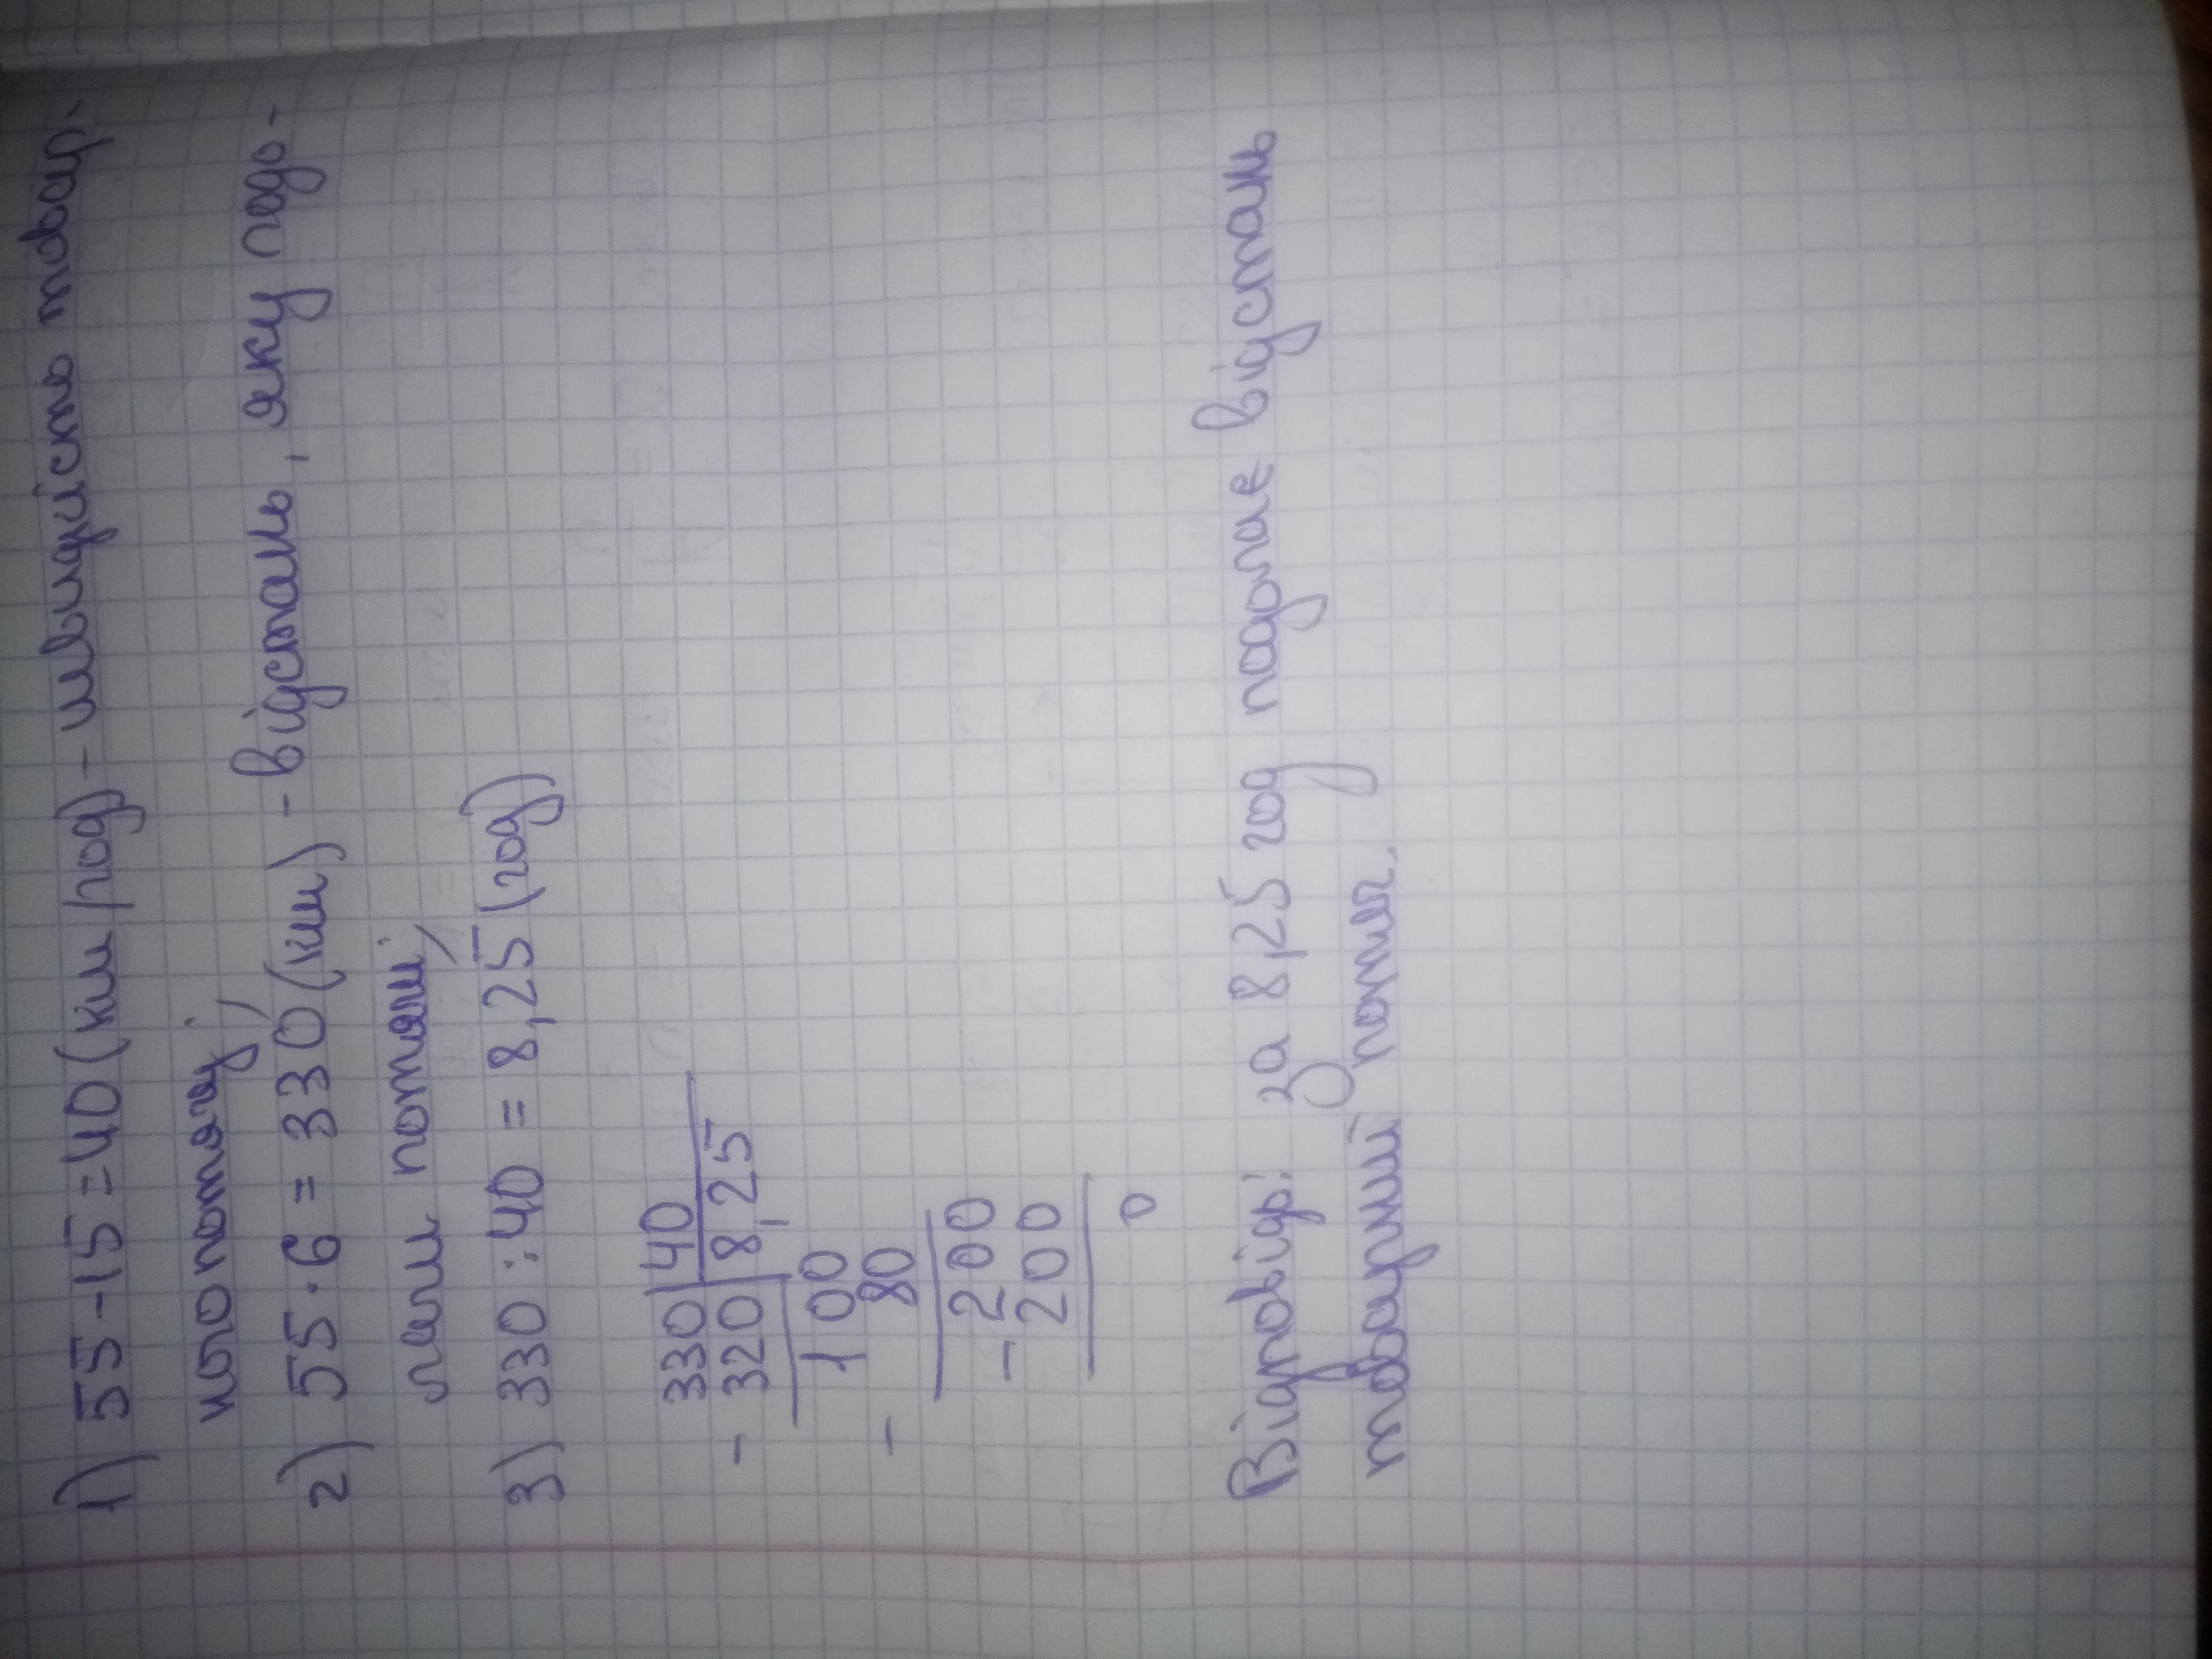 1) 55-15=40 (км/год) - швидкість товар-
ного потягу;
2) 55·6=330 (км) - відстань, яку подо-
лали потяги;
3) 330:40=8,25 (год)
330|40
- 320|8,25
100
- 80
- 200
200
0
Відповідь: за 8,25 год подолає відстань
товарний потяг.